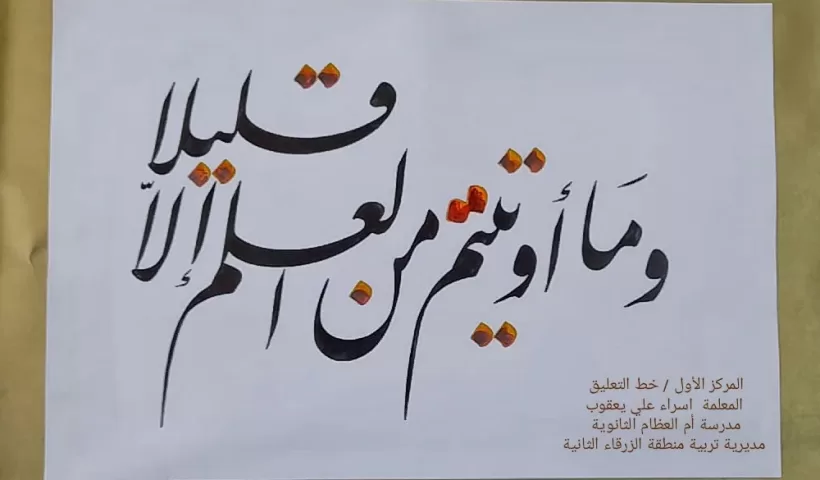 وَمَا أوتيتم من العلم إلاّ قليلا
المركز الأول / خط التعليق
المعلمة اسراء علي يعقوب
مدرسة أم العظام الثانوية
مديرية تربية منطقة الزرقاء الثانية